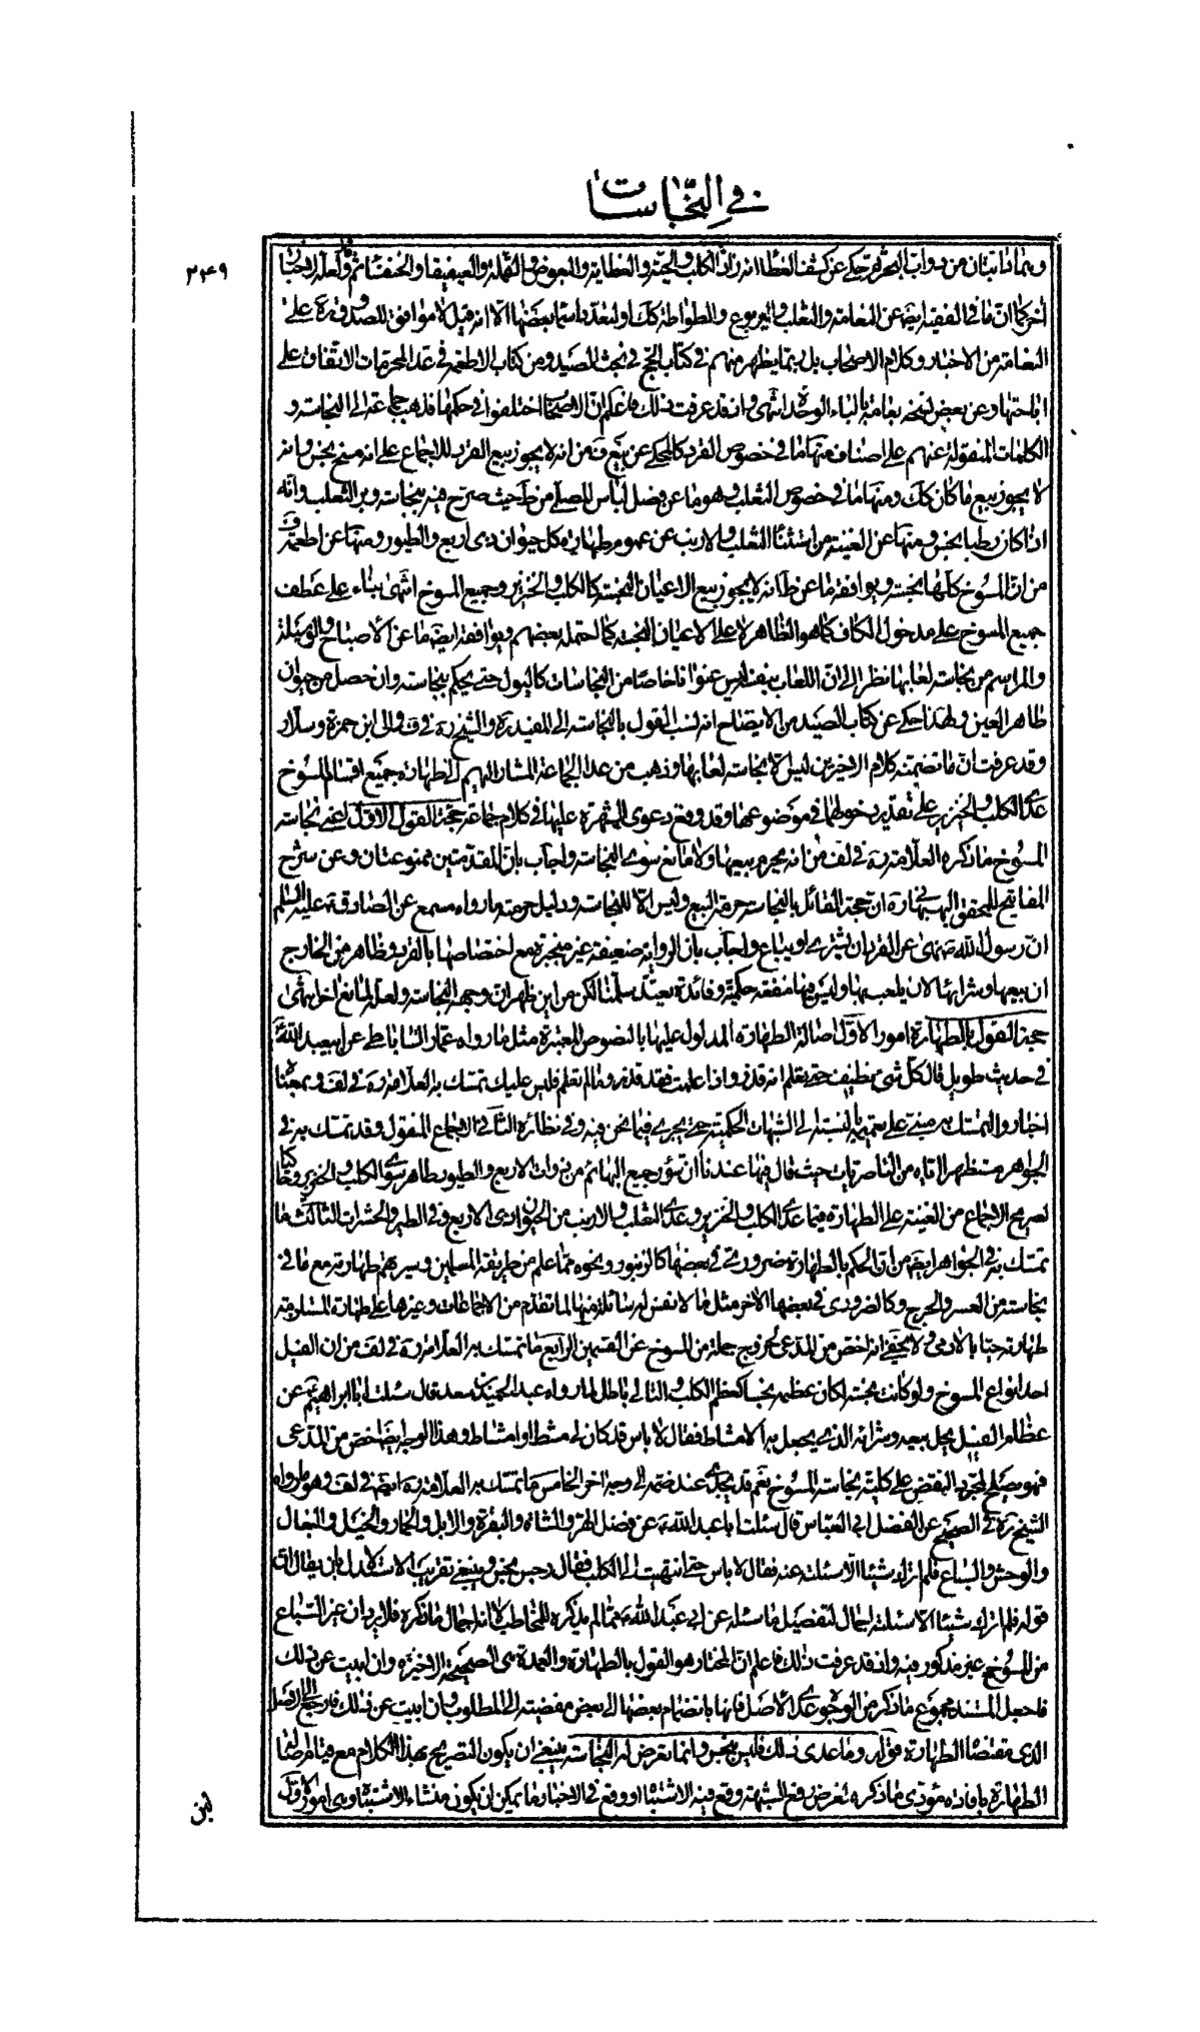 في النجاسات
٢٣٤٩
وهما دابتان من دواب البحر ثم حكى عن كشف الغطاء انه زاد الكلب والحية والعظاية والبعوض والقملة والعيفيفا والخنفساء ثم قال ولعله لاخبار
اخر كما ان ما في الفقيه ايضا عن النعامة والثعلب واليربوع والطواطة كك او لتعدد اسماء بعضها الا انه قيل لا موافق للصدوق ره على
النعامة من الاخبار وكلام الاصحاب بل ربما يظهر منهم في كتاب الحج في بحث الصيد ومن كتاب الاطعمة في عد المحرمات الاتفاق على
اباحتها وعن بعض نسخه بغامة بالباء الموحدة انتهى واذ قد عرفت ذلك فاعلم ان الاصحاب اختلفوا في حكمها فذهب جماعة الى النجاسة و
الكلمات المنقولة عنهم على اصناف منها ما في خصوص القرد كالمحكي عن بيع ف من انه لا يجوز بيع القرد للاجماع على انه مسخ نجس وانه
لا يجوز بيع ما كان كك ومنها ما في خصوص الثعلب وهو ما عن فصل لباس المصلي من ط حيث صرح فيه بنجاسة وبر الثعلب وانه
اذا كان رطبا نجس ومنها عن الغنية من استثناء الثعلب والارنب عن عموم طهارة كل حيوان ذي اربع والطيور ومنها عن اطعمة ف
من ان المسوخ كلها نجسة ويوافقه ما عن ط انه لا يجوز بيع الاعيان النجسة كالكلب والخنزير وجميع المسوخ انتهى بناء على عطف
جميع المسوخ على مدخول الكاف كما هو الظاهر لا على الاعيان النجسة كما احتمله بعضهم ويوافقه ايضا ما عن الاصباح والوسيلة
والمراسم من نجاسة لعابها نظرا الى ان اللعاب بنفسه ليس عنوانا خاصا من النجاسات كالبول حتى يحكم بنجاسته وان حصل من حيوان
طاهر العين ولهذا حكى عن كتاب الصيد من الايضاح انه نسب القول بالنجاسة الى المفيد ره والشيخ ره في ف والى ابن حمزة وسلار
وقد عرفت ان ما تضمنه كلام الاخيرين ليس الا نجاسة لعابها وذهب من عدا الجماعة المشار اليهم الى طهارة جميع اقسام المسوخ
عدا الكلب والخنزير على تقدير دخولهما في موضوعها وقد وقع دعوى الشهرة عليها في كلام جماعة حجة القول الاول اعني نجاسة
المسوخ ما ذكره العلامة ره في لف من انه يحرم بيعها ولا مانع سوى النجاسة واجاب بان المقدمتين ممنوعتان وعن شرح
المفاتيح للمحقق البهبهاني ره ان حجة القائل بالنجاسة حرمة البيع وليس الا للنجاسة ودليل حرمته ما رواه مسمع عن الصادق عليه السلام
ان رسول الله ص نهى عن القرد ان يشترى او يباع واجاب بان الرواية ضعيفة غير منجبرة مع اختصاصها بالقرد وظاهر من الخارج
ان بيعها وشرائها لان يلعب بها وليس فيها منفعة حكمية وفائدة يعتد سلمنا لكن من اين ظهر ان وجهه النجاسة ولعل المانع اخر انتهى
حجة القول بالطهارة امور الاول اصالة الطهارة المدلول عليها بالنصوص المعتبرة مثل ما رواه عمار الساباطي عن ابي عبد الله ع
في حديث طويل قال كل شئ نظيف حتى تعلم انه قذر واذا علمت فقد قذر وما لم تعلم فليس عليك تمسك به العلامة ره في لف وبمعناه
اخبار والتمسك به مبني على تعميمه بالنسبة الى الشبهات الحكمية حتى يجري فيما نحن فيه وفي نظائره الثاني الاجماع المنقول وقد تمسك به في
الجواهر مستظهرا اياه من الناصريات حيث قال فيها عندنا ان سؤر جميع البهائم من ذوات الاربع والطيور طاهر سوى الكلب والخنزير وحاكيا
لصريح الاجماع من الغنية على الطهارة فيما عدا الكلب والخنزير وعدا الثعلب والارنب من الحيوان ذي الاربع وفي الطير والحشرات الثالث ما
تمسك به في الجواهر ايضا من ان الحكم بالطهارة ضروري في بعضها كالزنبور ونحوه مما علم من طريقة المسلمين وسيرتهم طهارته مع ما في
نجاسته من العسر والحرج وكالضروري في بعضها الاخر مثل ما لا نفس له سائلة منها لما تقدم من الاجماعات وغيرها على طهارة المشار به
طهارته حيا بالاولى ولا يخفى انه اخص من المدعى لخروج جملة من المسوخ عن القسمين الرابع ما تمسك به العلامة ره في لف من ان الفيل
احد انواع المسوخ ولو كانت نجسة لكان عظمه نجسا كعظم الكلب والتالي باطل لما رواه عبد الحميد بن سعد قال سئلت ابا ابراهيم ع عن
عظام الفيل يحل بيعه وشرائه الذي يجعل به الامشاط فقال لا باس قد كان لي مشط او امشاط وهذا الوجه ايضا اخص من المدعى
فهو يصلح لمجرد النقض على كلية نجاسة المسوخ نعم قد يجدى عند ضمه الى وجه اخر الخامس ما تمسك به العلامة ره ايضا في لف وهو ما رواه
الشيخ ره في الصحيح عن الفضل ابي العباس قال سئلت ابا عبد الله ع عن فضل الهرة والشاة والبقرة والابل والحمار والخيل والبغال
والوحش والسباع فلم اترك شيئا الا سئلته عنه فقال لا باس حتى انتهيت الى الكلب فقال رجس نجس وينبغي تقريب الاستدلال بان يقال ان
قوله فلم اترك شيئا الا سئلته اجمال لتفصيل ما سئله عن ابي عبد الله ع مما لم يذكره للمخاطب لا انه اجمال ما ذكره فلا يرد ان غير السباع
من المسوخ غير مذكور فيه واذ قد عرفت ذلك فاعلم ان المختار هو القول بالطهارة والعمدة هي الصحيحة الاخيرة وان ابيت عن ذلك
فاجعل المستند مجموع ما ذكر من الوجوه عدا الاصل فانها بانضمام بعضها الى بعض مفضية الى المطلوب وان ابيت عن ذلك فارجع الى الاصل
الذي مقتضاه الطهارة قوله وما عدى ذلك فليس بنجس وانما تعرض له النجاسة ينبغي ان يكون التصريح بهذا الكلام مع فيام اصالة
الطهارة بافادة مؤدى ما ذكره لغرض دفع الشبهة وقع فيه الاشتباه او وقع في الاخبار ما يمكن ان يكون منشاء الاشتباه وهي امور الاول
لبن